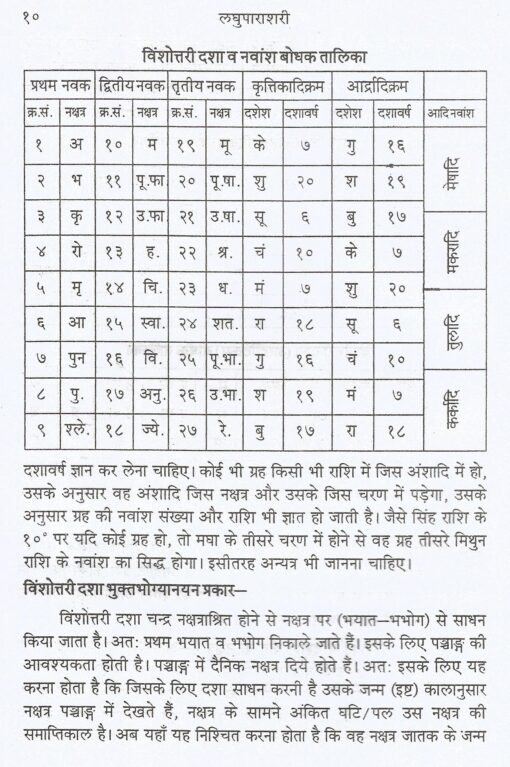 १० लघुपाराशरी
विंशोत्तरी दशा व नवांश बोधक तालिका
प्रथम नवक द्वितीय नवक तृतीय नवक कृत्तिकादिक्रम आर्द्रादिक्रम
क्र.सं. नक्षत्र क्र.सं. नक्षत्र क्र.सं. नक्षत्र दशेश दशावर्ष दशेश दशावर्ष आदिनवांश
१ अ १० म १९ मू के ७ गु १६ मेषादि
२ भ ११ पू.फा. २० पू.षा. शु २० श १९
३ कृ १२ उ.फा. २१ उ.षा. सू ६ बु १७ मकरादि
४ रो १३ ह. २२ श्र. चं १० के ७
५ मृ १४ चि. २३ ध. मं ७ शु २०
६ आ १५ स्वा. २४ शत. रा १८ सू ६ तुलादि
७ पुन १६ वि. २५ पू.भा. गु १६ चं १०
८ पु. १७ अनु. २६ उ.भा. श १९ मं ७ कर्कादि
९ श्ले. १८ ज्ये. २७ रे. बु १७ रा १८
दशावर्ष ज्ञान कर लेना चाहिए। कोई भी ग्रह किसी भी राशि में जिस अंशादि में हो,
उसके अनुसार वह अंशादि जिस नक्षत्र और उसके जिस चरण में पड़ेगा, उसके
अनुसार ग्रह की नवांश संख्या और राशि भी ज्ञात हो जाती है। जैसे सिंह राशि के
१०° पर यदि कोई ग्रह हो, तो मघा के तीसरे चरण में होने से वह ग्रह तीसरे मिथुन
राशि के नवांश का सिद्ध होगा। इसीतरह अन्यत्र भी जानना चाहिए।
विंशोत्तरी दशा भुक्तभोग्यानयन प्रकार—
विंशोत्तरी दशा चन्द्र नक्षत्राश्रित होने से नक्षत्र पर (भयात—भभोग) से साधन
किया जाता है। अतः प्रथम भयात व भभोग निकाले जाते हैं। इसके लिए पञ्चाङ्ग की
आवश्यकता होती है। पञ्चाङ्ग में दैनिक नक्षत्र दिये होते हैं। अतः इसके लिए यह
करना होता है कि जिसके लिए दशा साधन करनी है उसके जन्म (इष्ट) कालानुसार
नक्षत्र पञ्चाङ्ग में देखते हैं, नक्षत्र के सामने अंकित घटि/पल उस नक्षत्र की
समाप्तिकाल है। अब यहाँ यह निश्चित करना होता है कि वह नक्षत्र जातक के जन्म